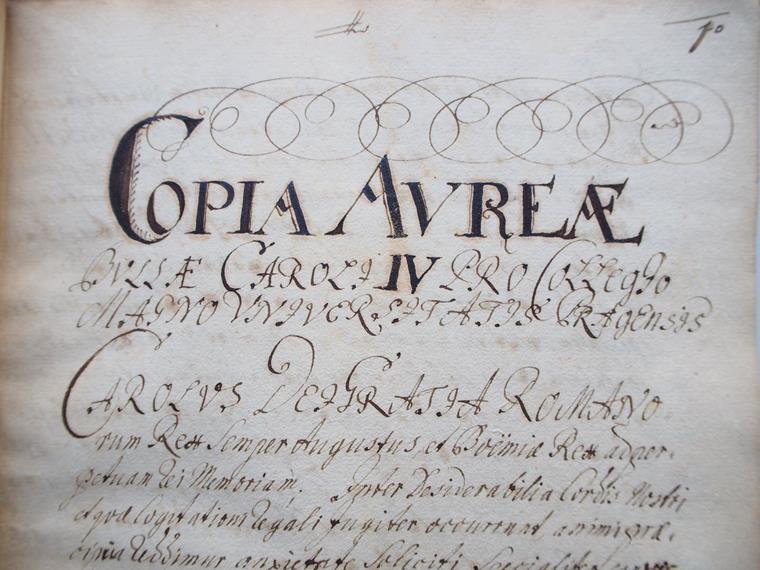 COPIA AVREÆ
BVLLÆ CAROLI IV PRO COLLEGIO
MAGNO VNIVERSITATIS PRAGENSIS
CAROLVS DEI GRATIA ROMANO
rum Rex Semper Augustus, et Boëmiæ Rex ad per-
petuam Rei Memoriam. Inter Desiderabilia Cordis Nostri
et quæ Cogitationi Regali jugiter occurrunt, animi præ-
cipua reddimur anxietate Soliciti